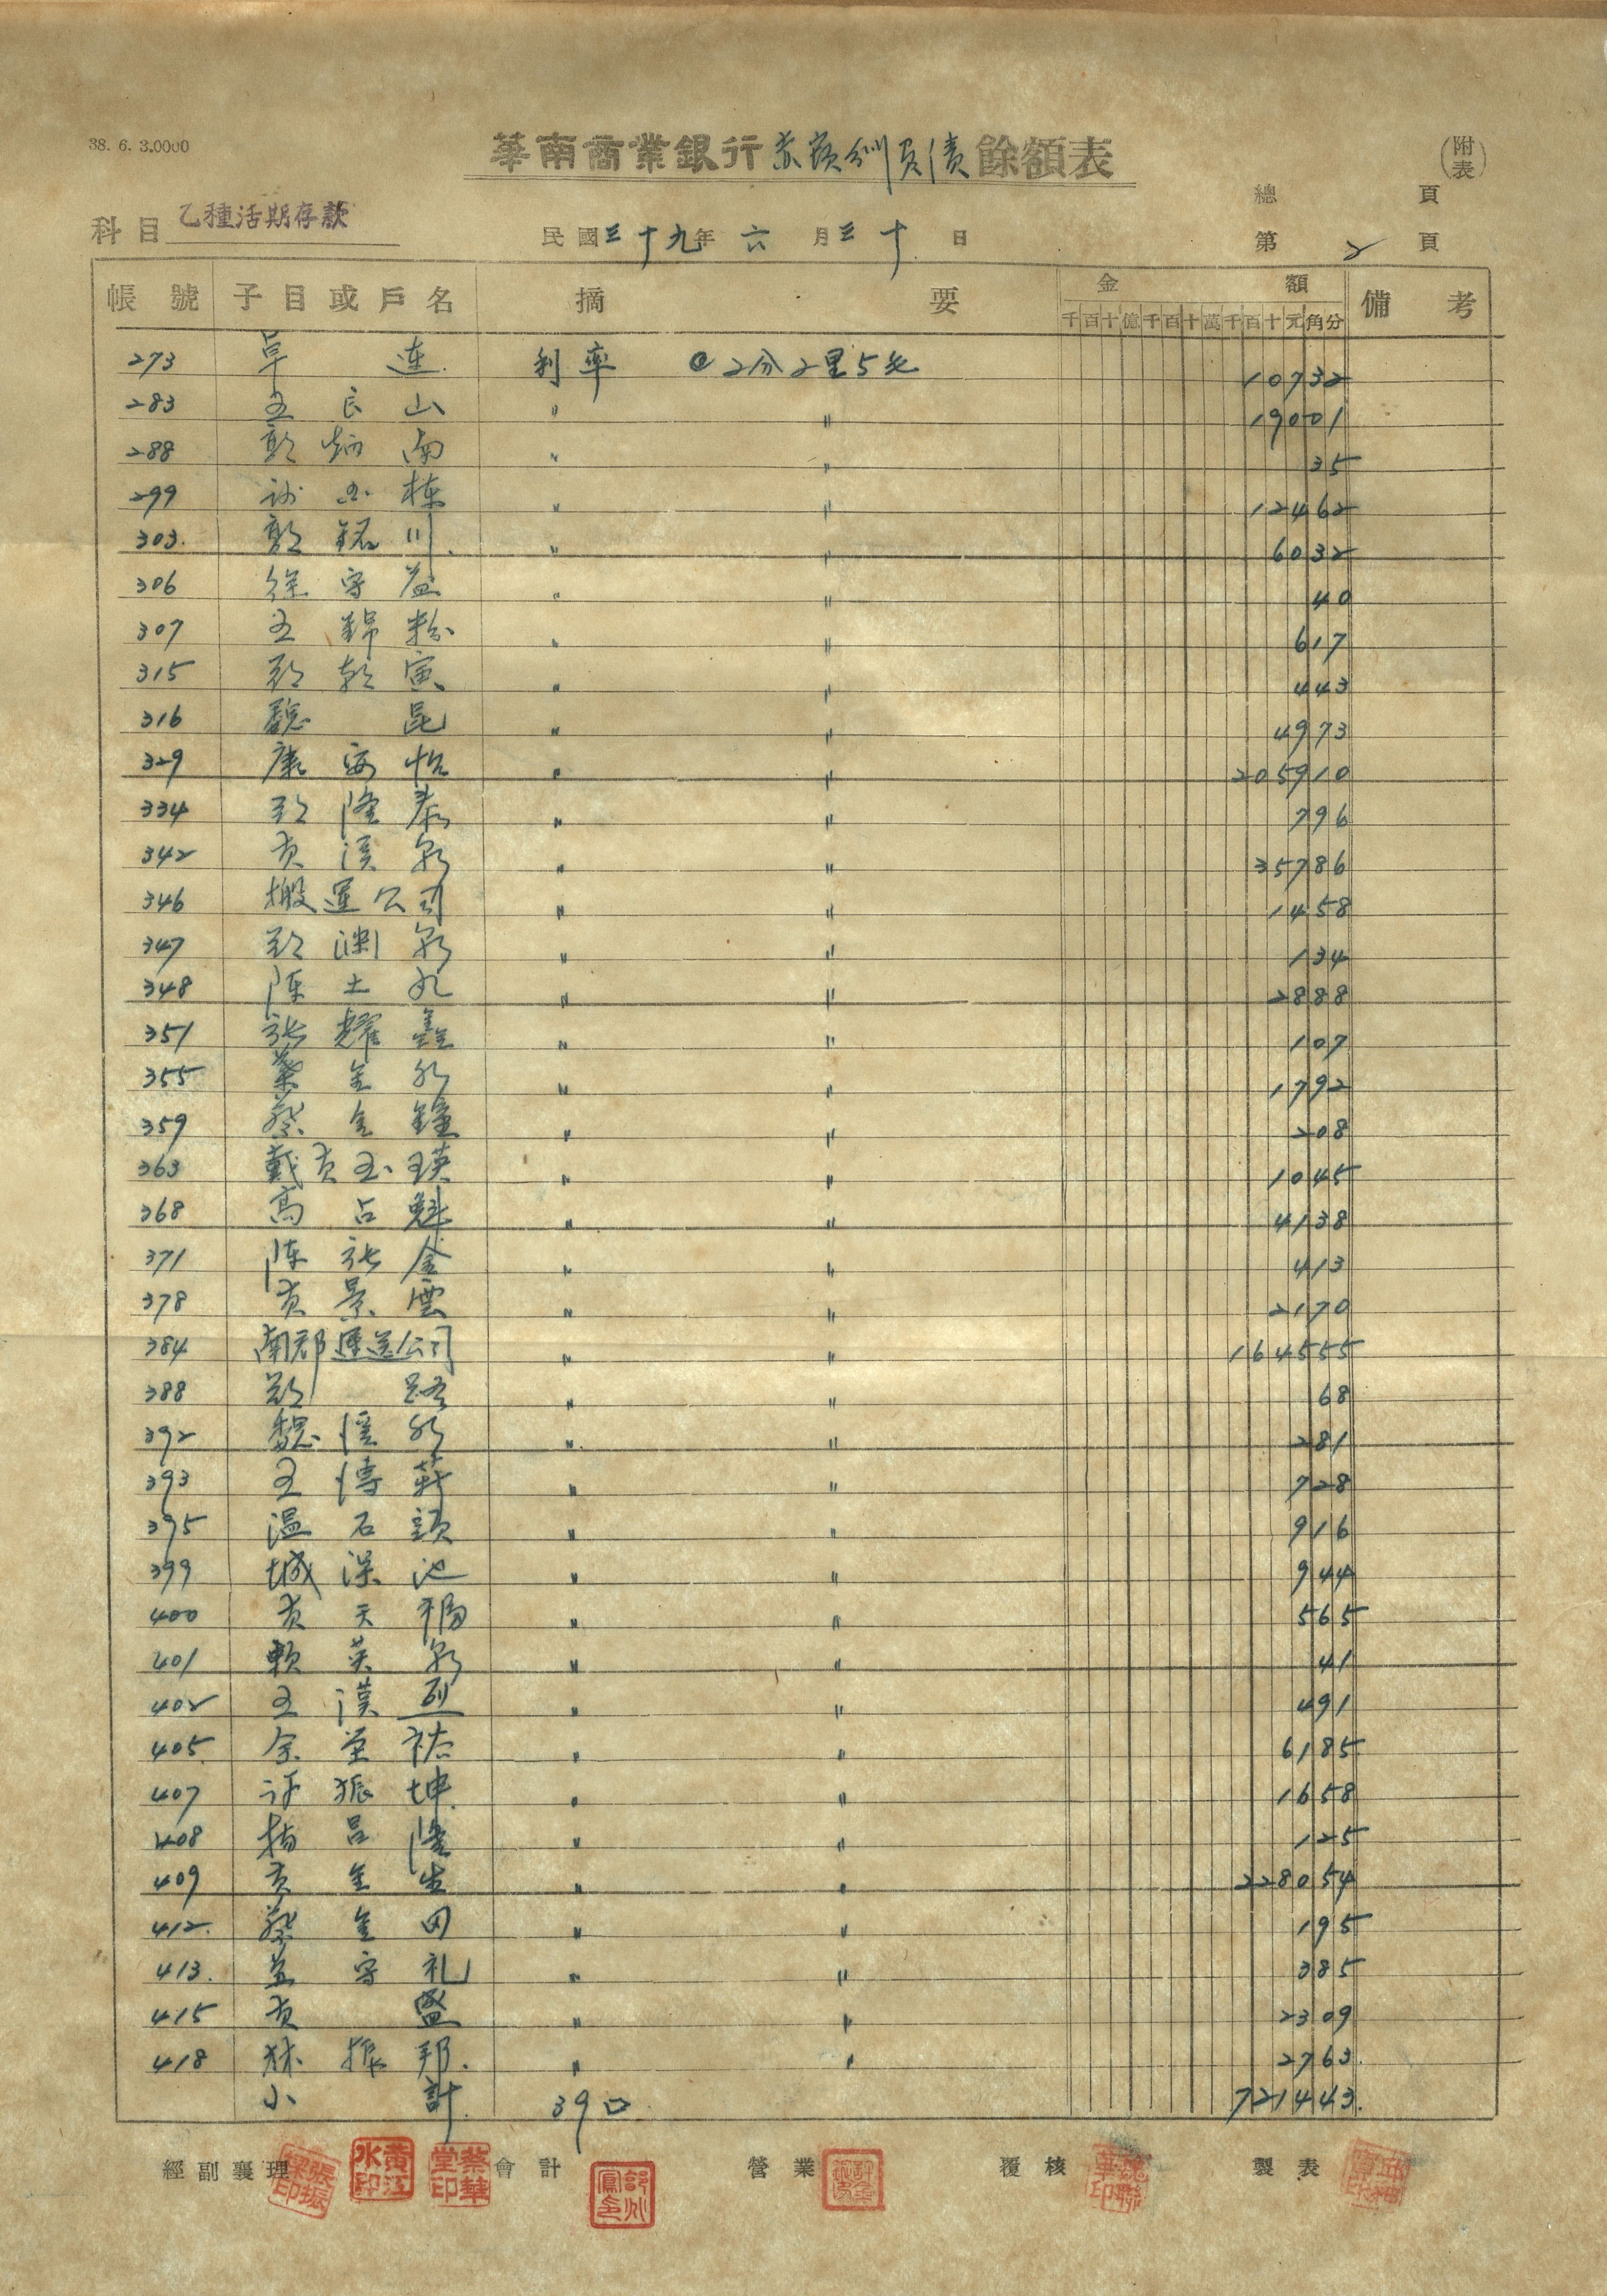 38. 6. 3.0000
華南商業銀行赤嵌剑負債餘額表
(附表)
總 頁
科目 乙種活期存款
民國三十九年 六 月 三十 日
第 2 頁
帳號 子目或戶名 摘要 金額 備考
千百十億千百十萬千百十元角分
273 卓 連 利率 @2分2里5毛 10732
283 王良山 〃 〃 19001
288 鄭炳南 〃 〃 35
299 謝玉棟 〃 〃 12462
303. 鄭銘川 〃 〃 6032
306 徐守益 〃 〃 40
307 王錦粉 〃 〃 617
315 鄭乾寅 〃 〃 443
316 魏 昆 〃 〃 4973
329 康安怡 〃 〃 205910
334 鄭隆泰 〃 〃 796
342 黄溪泉 〃 〃 35786
346 搬運公司 〃 〃 1458
347 鄭渊泉 〃 〃 134
348 陈土 〃 〃 2888
351 張耀鑫 〃 〃 107
355 葉金水 〃 〃 1792
359 蔡金鐘 〃 〃 208
363 戴黄玉瑛 〃 〃 1045
368 高占魁 〃 〃 4138
371 陈張金 〃 〃 413
378 黄景雲 〃 〃 2170
384 南郡運送公司 〃 〃 164555
388 鄭 路 〃 〃 68
392 魏溪水 〃 〃 281
393 王傳 〃 〃 728
395 温石頭 〃 〃 916
399 城深池 〃 〃 944
400 黄天 〃 〃 565
401 賴英泉 〃 〃 41
402 王漢烈 〃 〃 491
405 余堂祐 〃 〃 6185
407 许振坤 〃 〃 1658
408 吕隆 〃 〃 125
409 黄金生 〃 〃 228054
412. 蔡金田 〃 〃 195
413. 守礼 〃 〃 385
415 黄 盛 〃 〃 2309
418 林振邦. 〃 〃 2763.
小計 39口 721443.
經副襄理 張振樑印 黃江水印 蔡華堂印 會計 營業 覆核 製表